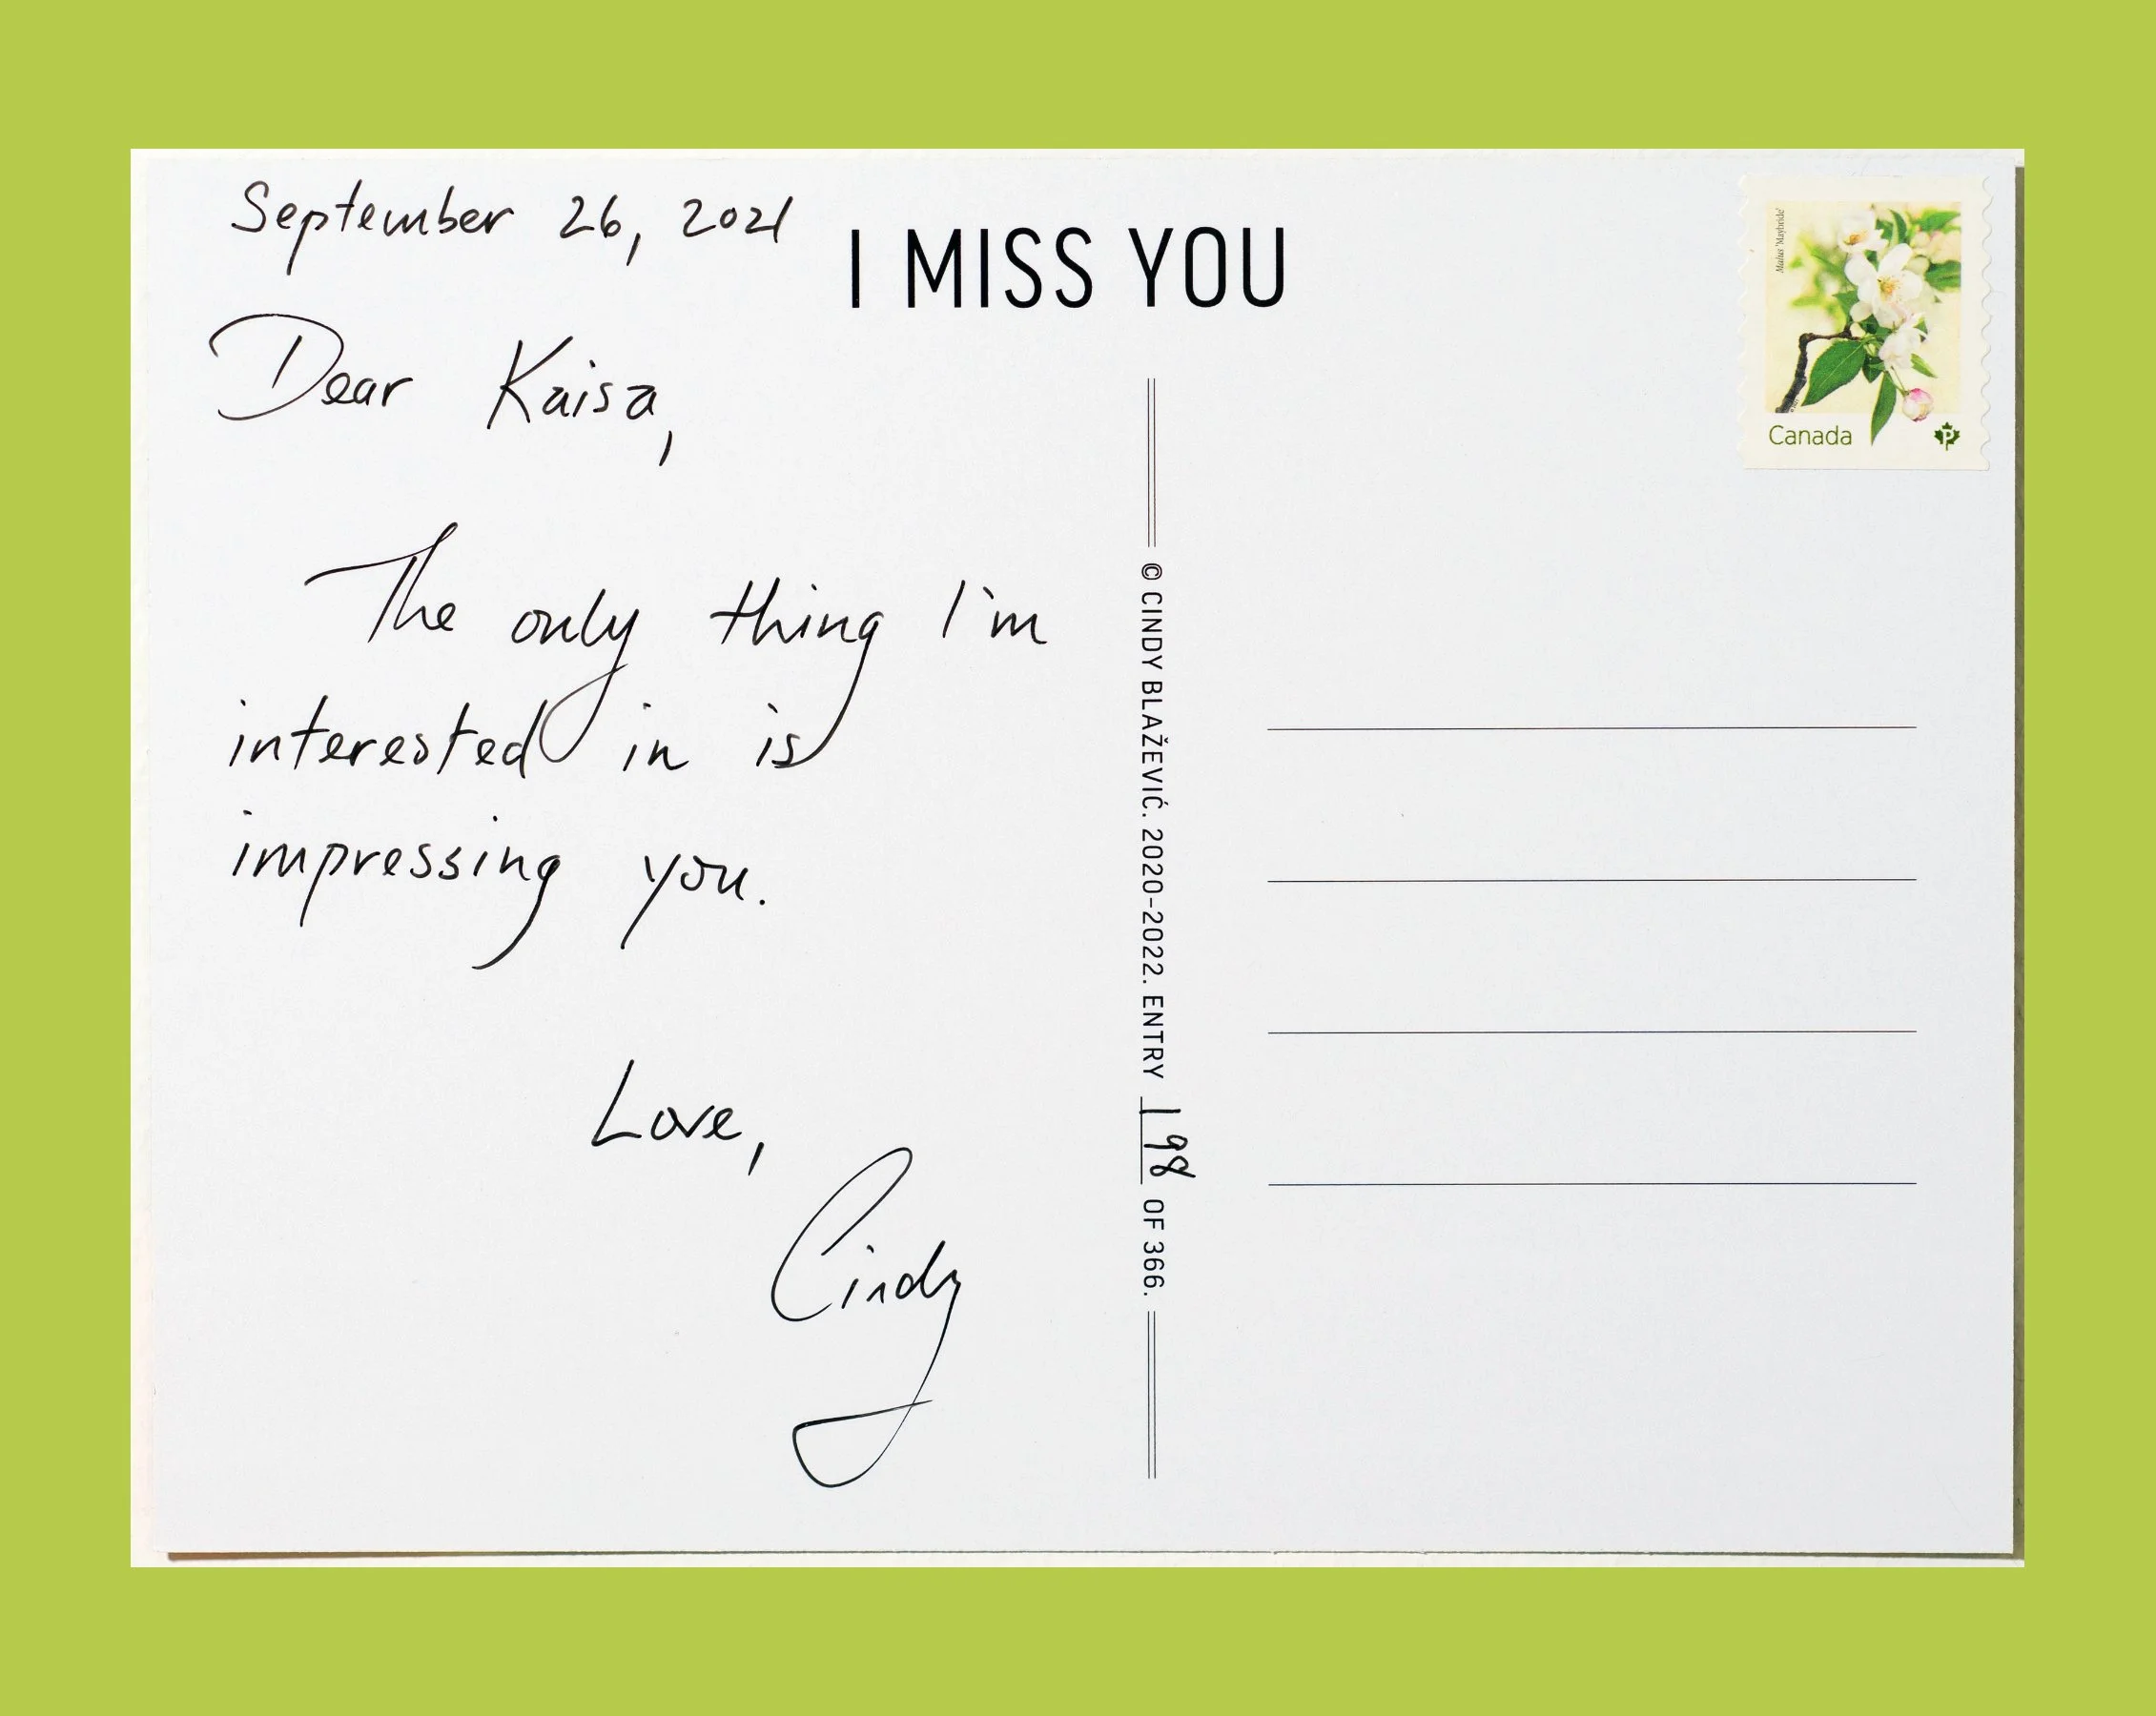 September 26, 2021
I MISS YOU
Dear Kaisa,
The only thing I'm
interested in is
impressing you.
Love,
Cindy
© CINDY BLAŽEVIĆ. 2020-2022. ENTRY 198 OF 366.
Canada
P